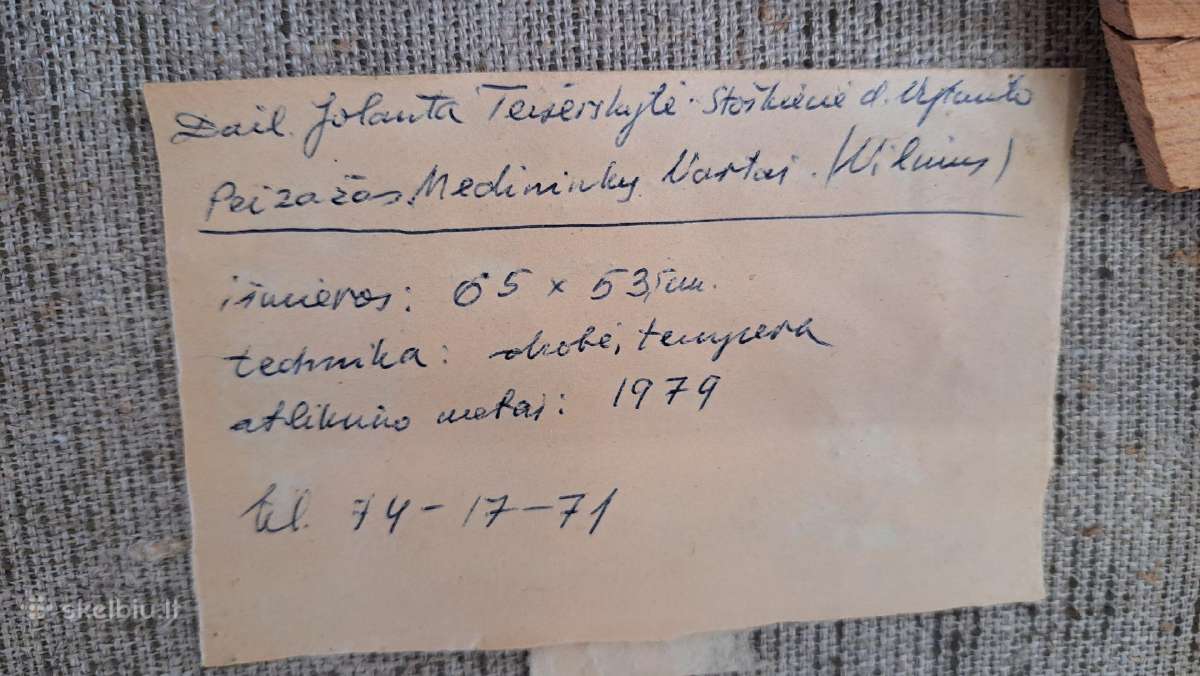 Dail. Jolanta Teišerskytė-Stoškienė d. Vytauto
Peizažas. Medininkų Vartai. (Vilnius)
išmieros: 65 x 53,5cm.
technika: drobė, tempera
atlikimo metai: 1979
tel. 74-17-71
skelbiu.lt